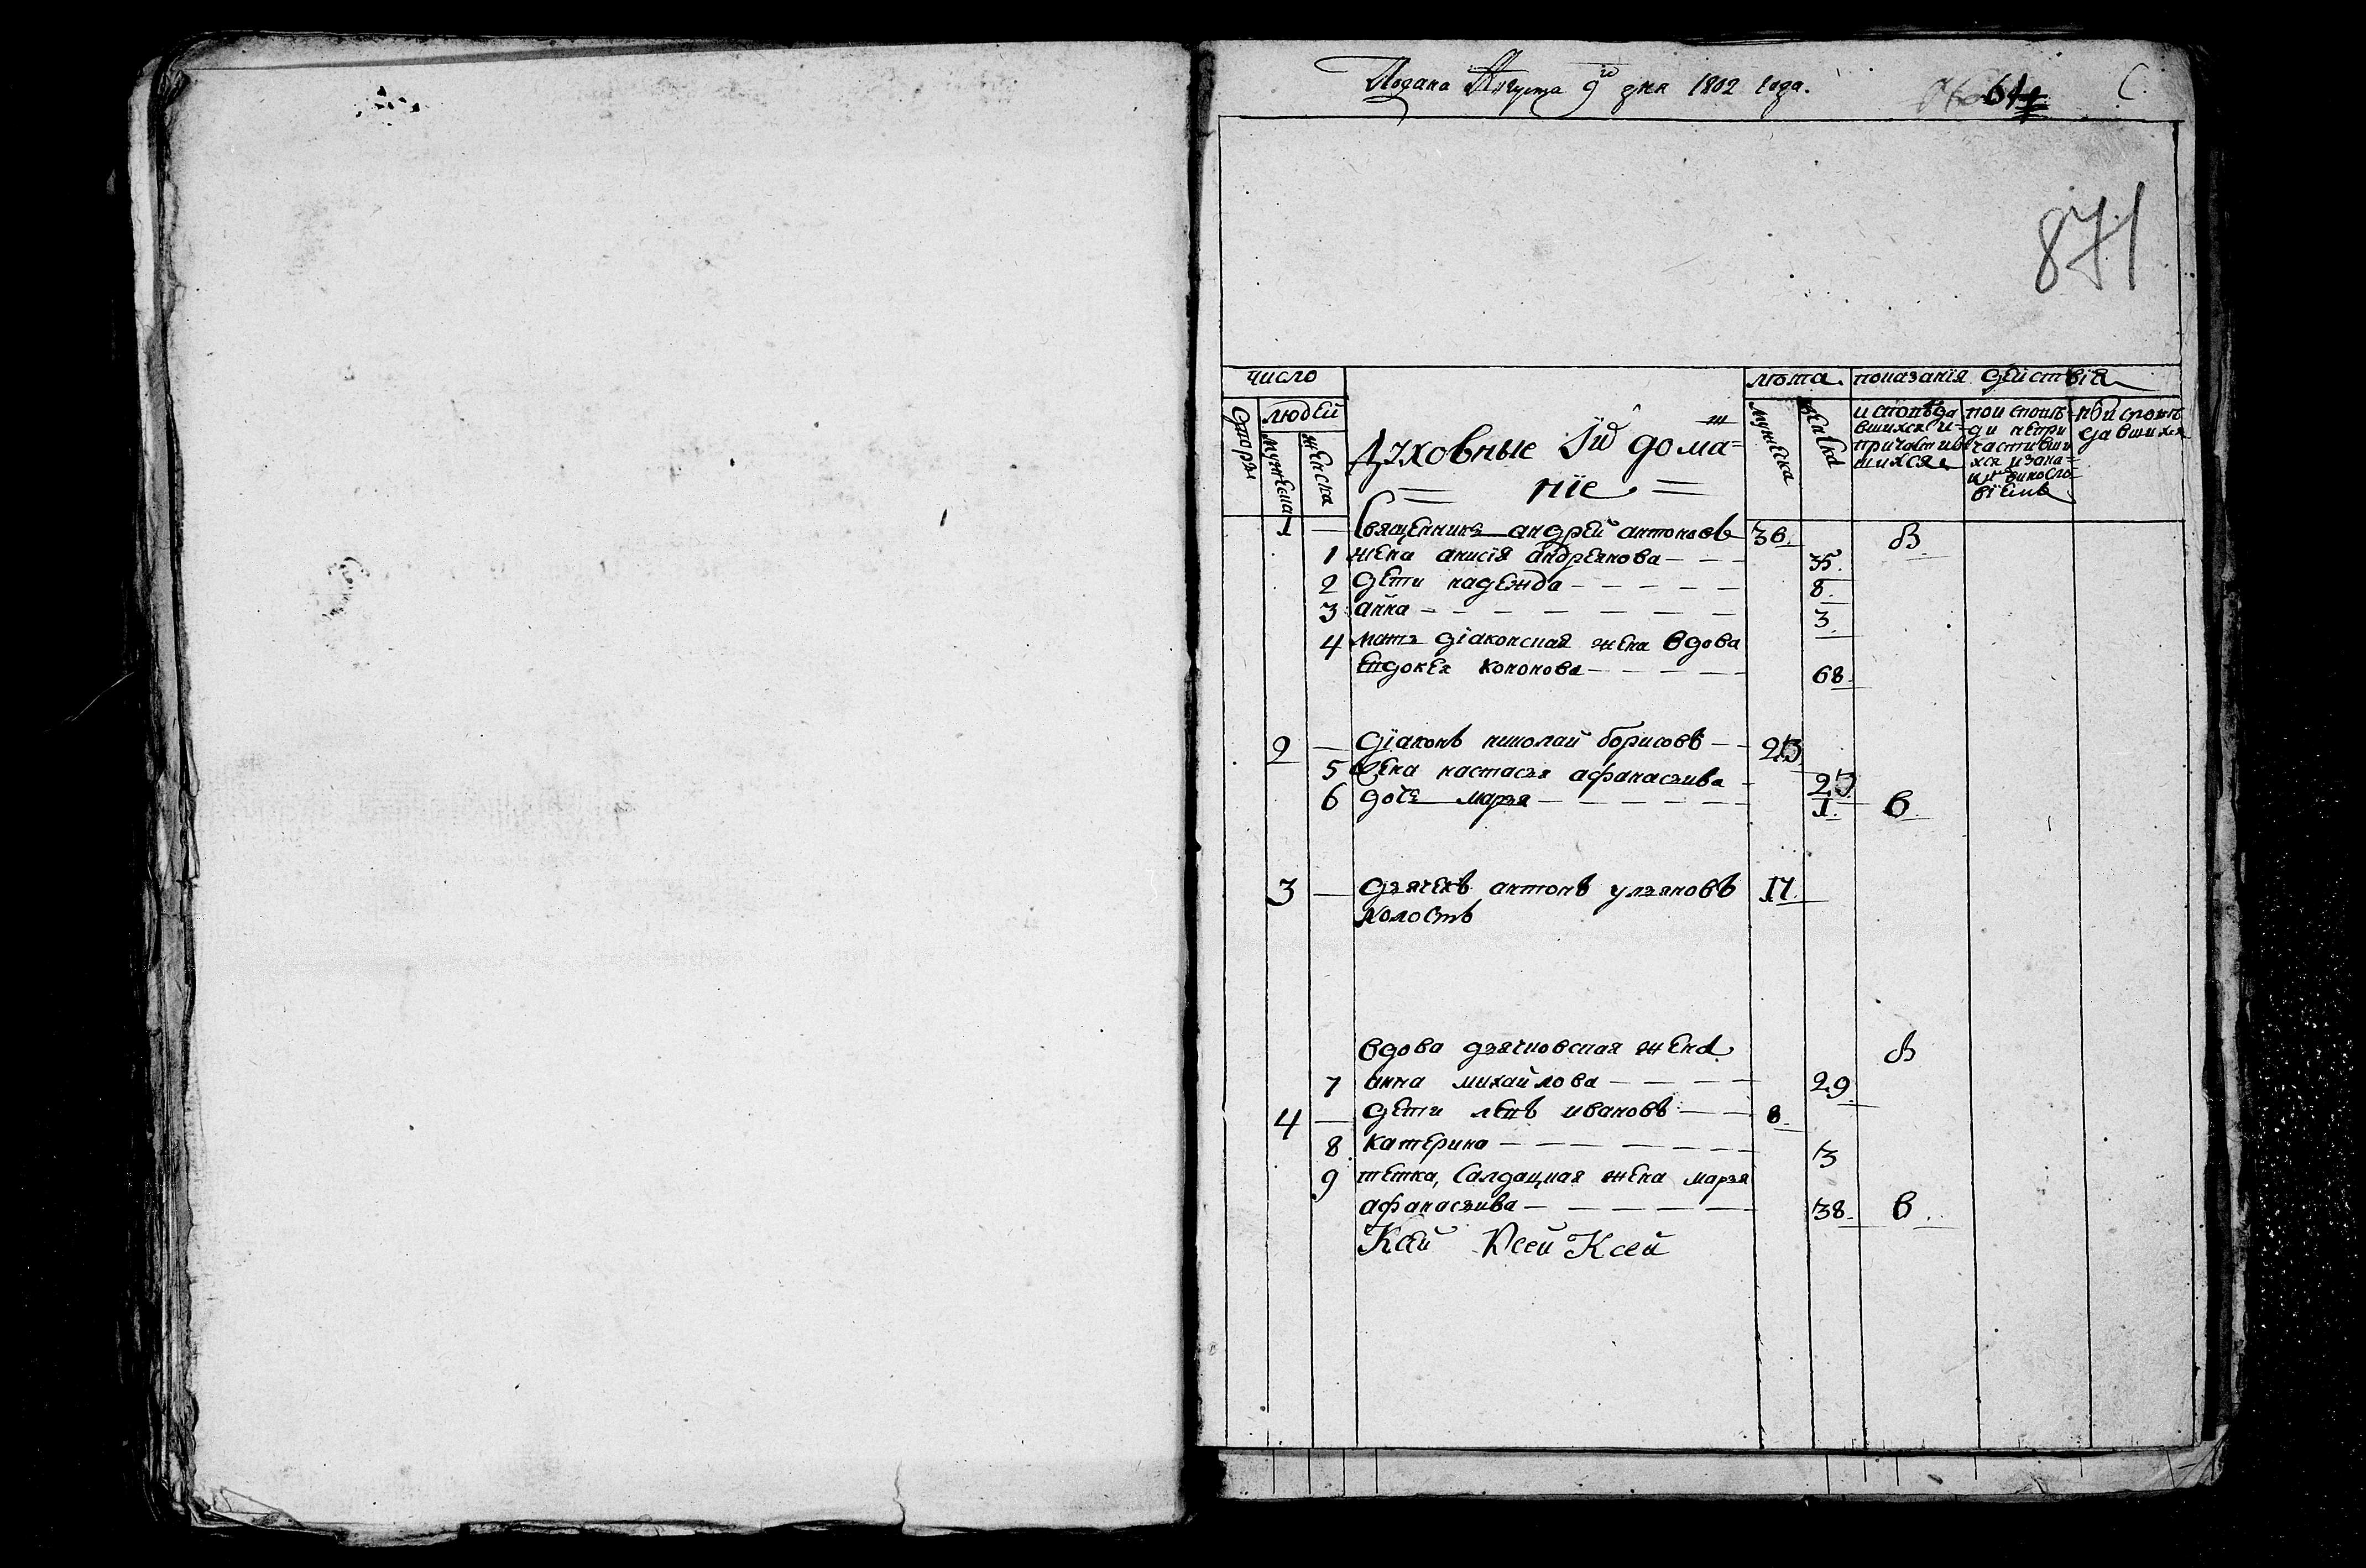 Подана Августа 9го дня 1802 года.
871
число
лѣта. показанія действія
людей
дворы
мужеска
женска
мужеска
женска
Духовные и домаш=
ніе
исповѣда
вшихся и
причастив
шихся
по исповѣ-
ди непри
частивши
хся и зака=
кимъ виносло
віемъ
не исповѣ
давшихся
1 — Священникъ андрей антоновъ 36. в
1 жена анисія андреянова 35.
2 дети надежда 8.
3 анна 3.
4 мать діаконская жена вдова
евдокея кононова 68.
2 — діаконъ николай борисовъ 23
5 жена настасья афанасьива 23
6 дочь марья 1. в
3 — дьячекъ антонъ ульяновъ 17.
холостъ
вдова дьячковская жена в
7 анна михайлова 29
4 — дети левъ ивановъ 8.
8 катерина 3
9 тетка, Салдацкая жена марья
афанасьива 38. в.
Ксей Ксей Ксей